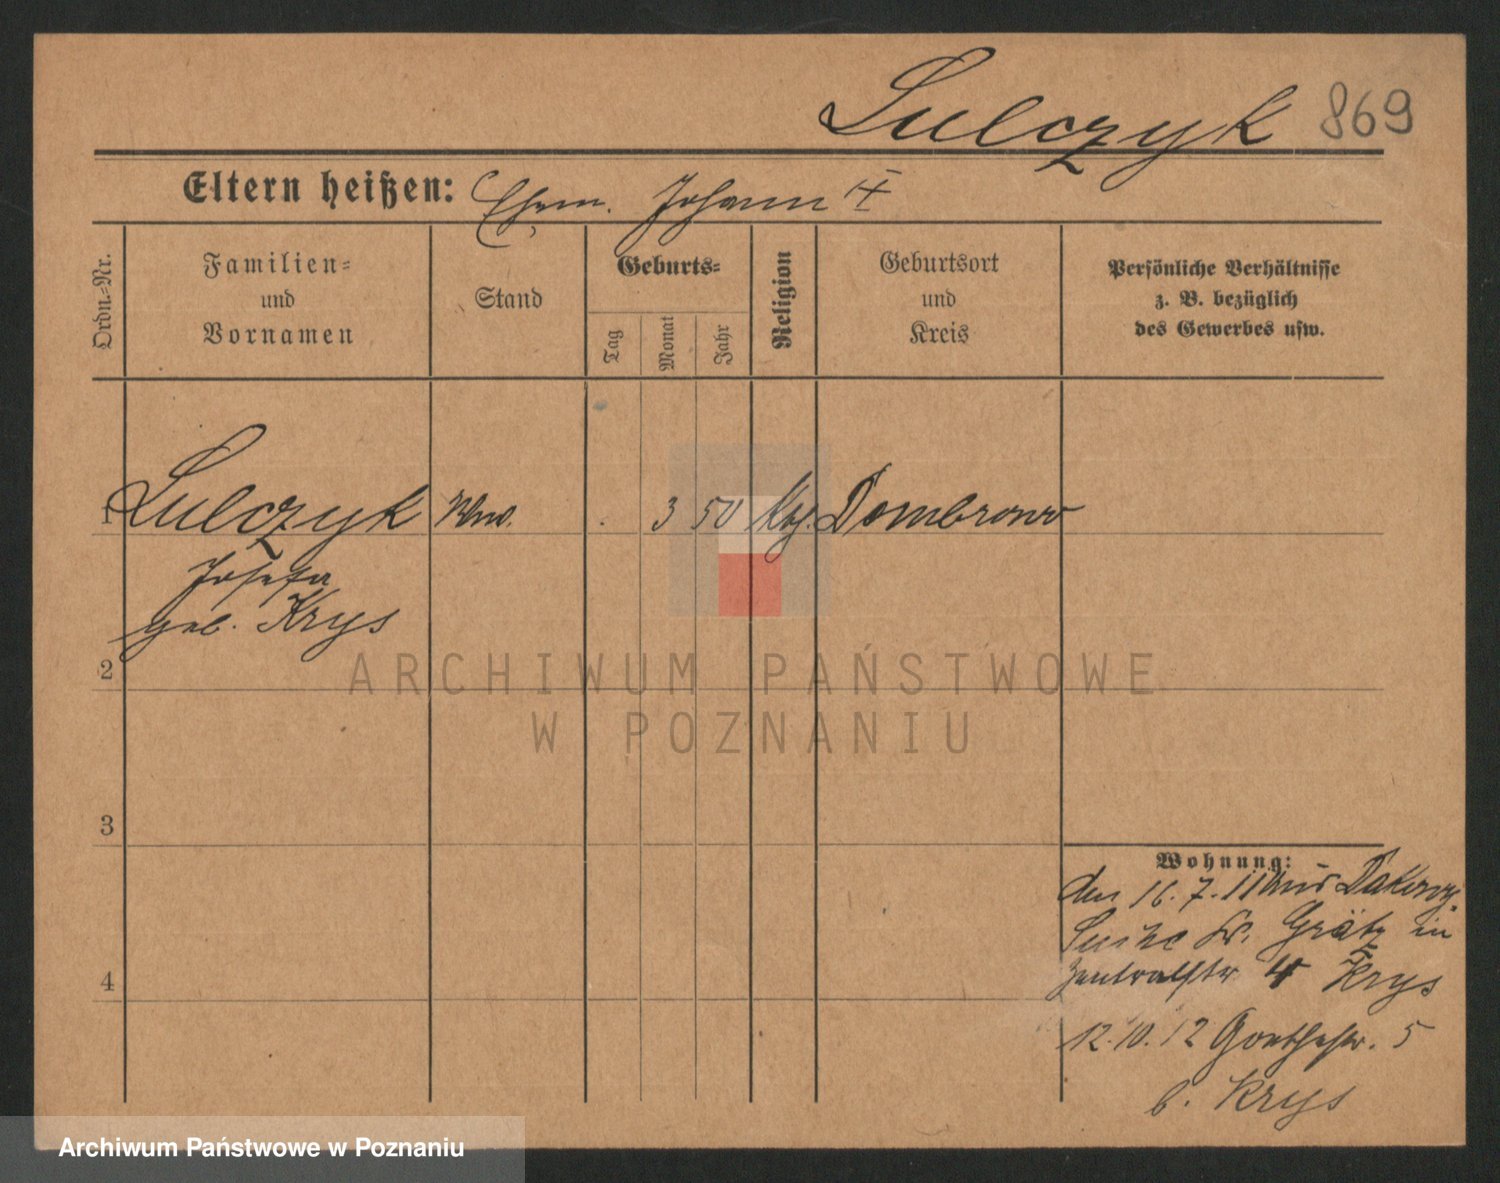 Sulczyk 869
Eltern heißen: Ehem. Johann
Ordn.-Nr.
Familien-
und
Vornamen
Stand
Geburts-
Tag
Monat
Jahr
Religion
Geburtsort
und
Kreis
Persönliche Verhältnisse
z. B. bezüglich
des Gewerbes usw.
1 Sulczyk Wwe. . 3 50 Dombrowo
Josefa
geb. Krys
2
ARCHIWUM PAŃSTWOWE
W POZNANIU
3
Wohnung:
den 16.7.11 aus
Kr. Grätz in
4
Zentralstr. 4 Krys
12.10.12 Goethestr. 5
b. Krys
Archiwum Państwowe w Poznaniu